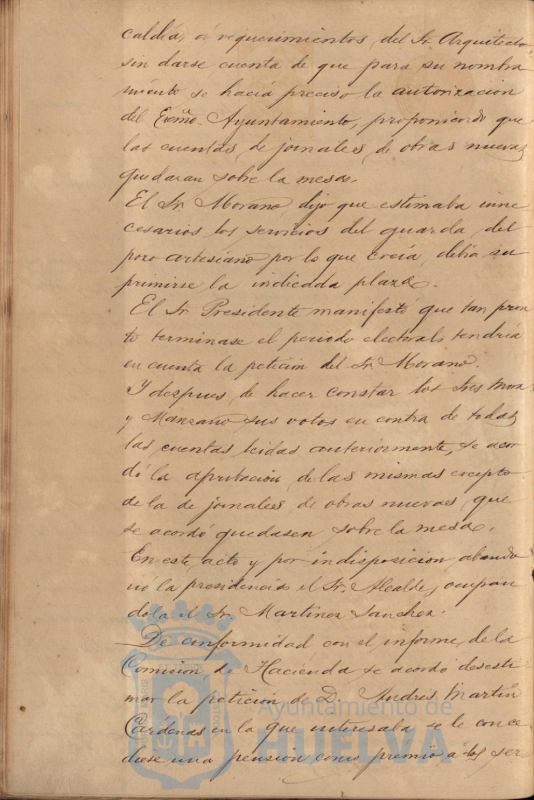 caldía, á requerimientos, del Sr. Arquitecto,
sin darse cuenta de que para su nombra
miento se hacía preciso la autorizacion
del Exmo. Ayuntamiento, proponiendo que
las cuentas, de jornales, de obras nuevas,
quedaran sobre la mesa.
El Sr. Morano, dijo que estimaba inne
cesarios los servicios del guarda, del
pozo artesiano por lo que creía, debía su
primirse la indicada plaza.
El Sr. Presidente manifestó que tan pron
to terminase el periodo electoral, tendría
en cuenta la peticion del Sr. Morano.
Y despues, de hacer constar los Sres Mora
y Manzano sus votos en contra de todas
las cuentas, leidas anteriormente, se acor
dó la aprobacion, de las mismas excepto
de la de jornales de obras nuevas, que
se acordó quedasen sobre la mesa.
En este, acto y por indisposicion, abando
nó la presidencia el Sr. Alcalde, ocupan
dola el Sr. Martinez Sanchez.
De conformidad, con el informe, de la
Comision, de Hacienda se acordó desesti
mar la peticion de D. Andres Martin
Cárdenas en la que interesaba se le conce
diese una pension como premio á los ser
Ayuntamiento de
HUELVA